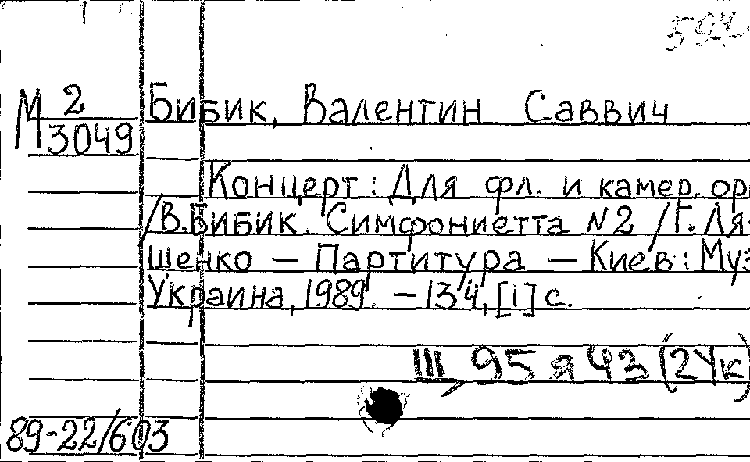 М 2
3049
Бибик, Валентин Саввич
Концерт: Для фл. и камер. ор
/В.Бибик. Симфониетта №2 /Г. Ля-
шенко — Партитура — Киев: Муз
Украина, 1989. – 134, [1] с.
Ш 95 я 43 (2Ук)
89-22/603